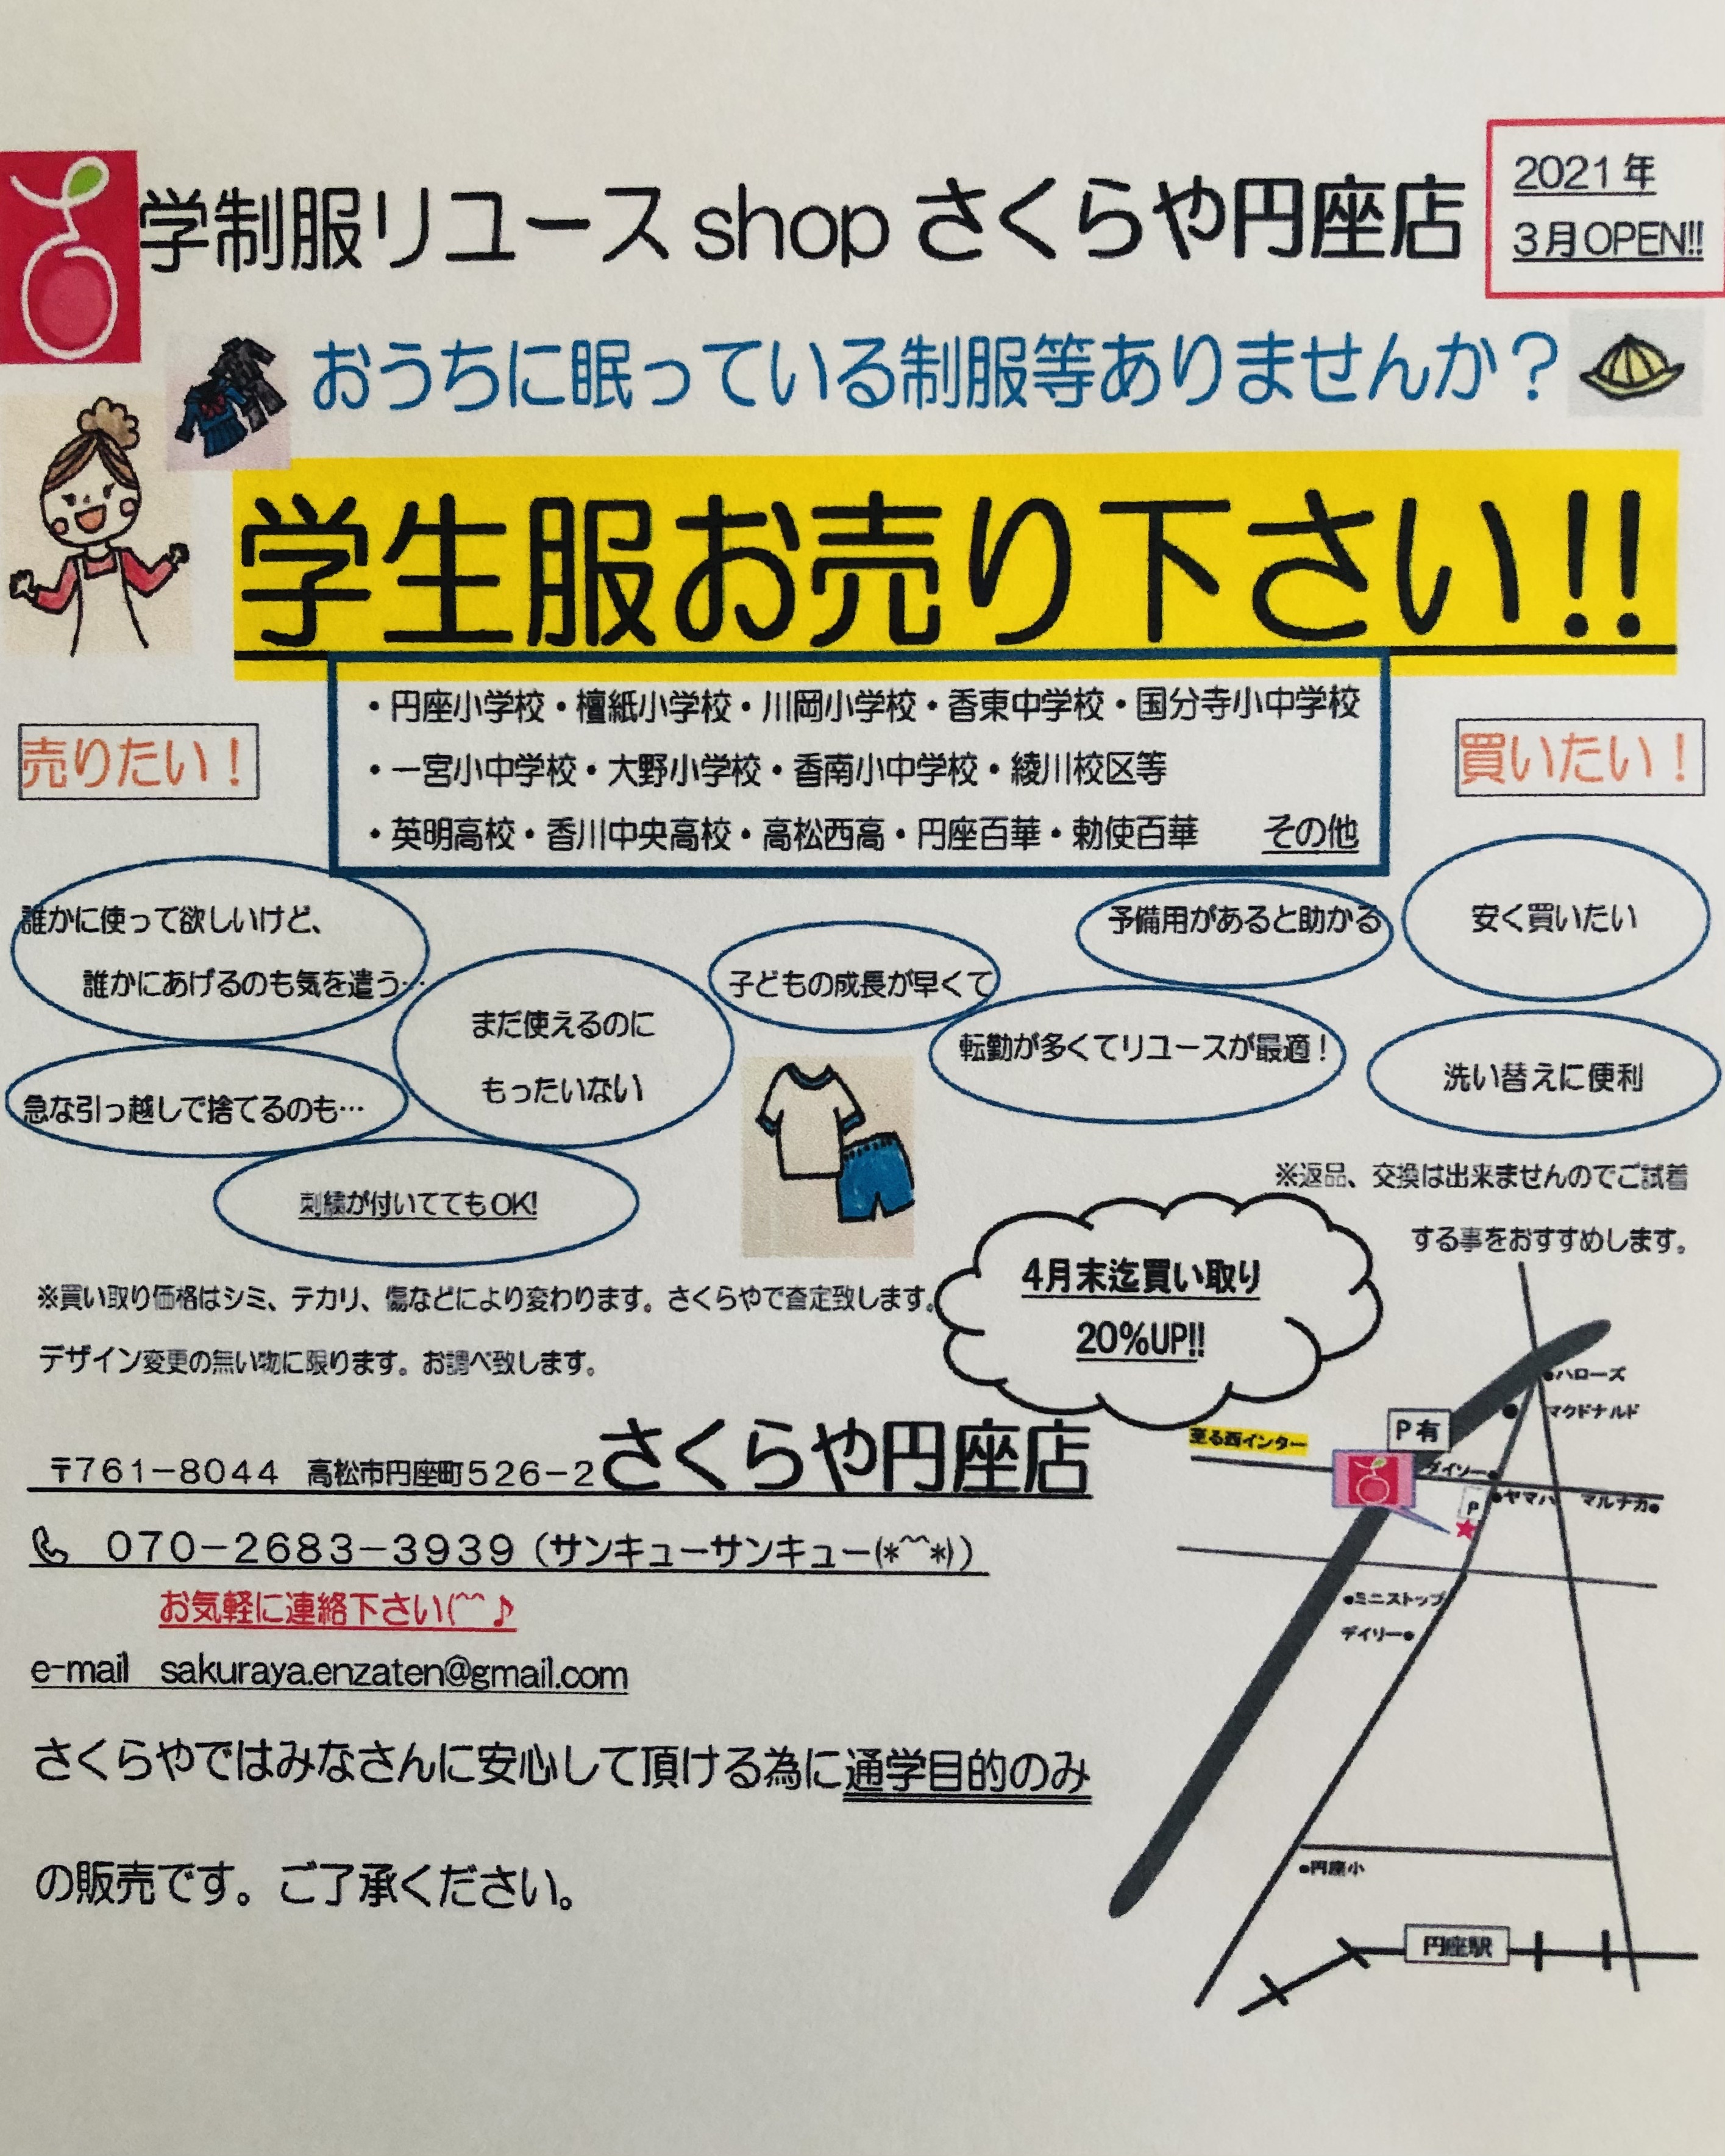 学制服リユース shop さくらや円座店
2021年
3月OPEN!!
おうちに眠っている制服等ありませんか？
学生服お売り下さい!!
・円座小学校・檀紙小学校・川岡小学校・香東中学校・国分寺小中学校
・一宮小中学校・大野小学校・香南小中学校・綾川校区等
・英明高校・香川中央高校・高松西高・円座百華・勅使百華　その他
売りたい！
買いたい！
誰かに使って欲しいけど、
誰かにあげるのも気を遣う…
まだ使えるのに
もったいない
急な引っ越しで捨てるのも…
刺繍が付いててもOK!
子どもの成長が早くて
予備用があると助かる
安く買いたい
転勤が多くてリユースが最適！
洗い替えに便利
※返品、交換は出来ませんのでご試着
する事をおすすめします。
※買い取り価格はシミ、テカリ、傷などにより変わります。さくらやで査定致します。
デザイン変更の無い物に限ります。お調べ致します。
4月末迄買い取り
20%UP!!
〒761－8044　高松市円座町526－2 さくらや円座店
070－2683－3939（サンキューサンキュー(*^^*)）
お気軽に連絡下さい(^^♪
e-mail　sakuraya.enzaten@gmail.com
さくらやではみなさんに安心して頂ける為に通学目的のみ
の販売です。ご了承ください。
●ハローズ
マクドナルド
P有
至る西インター
ダイソー●
●ヤマハ
マルナカ●
P
●ミニストップ
デイリー●
●円座小
円座駅